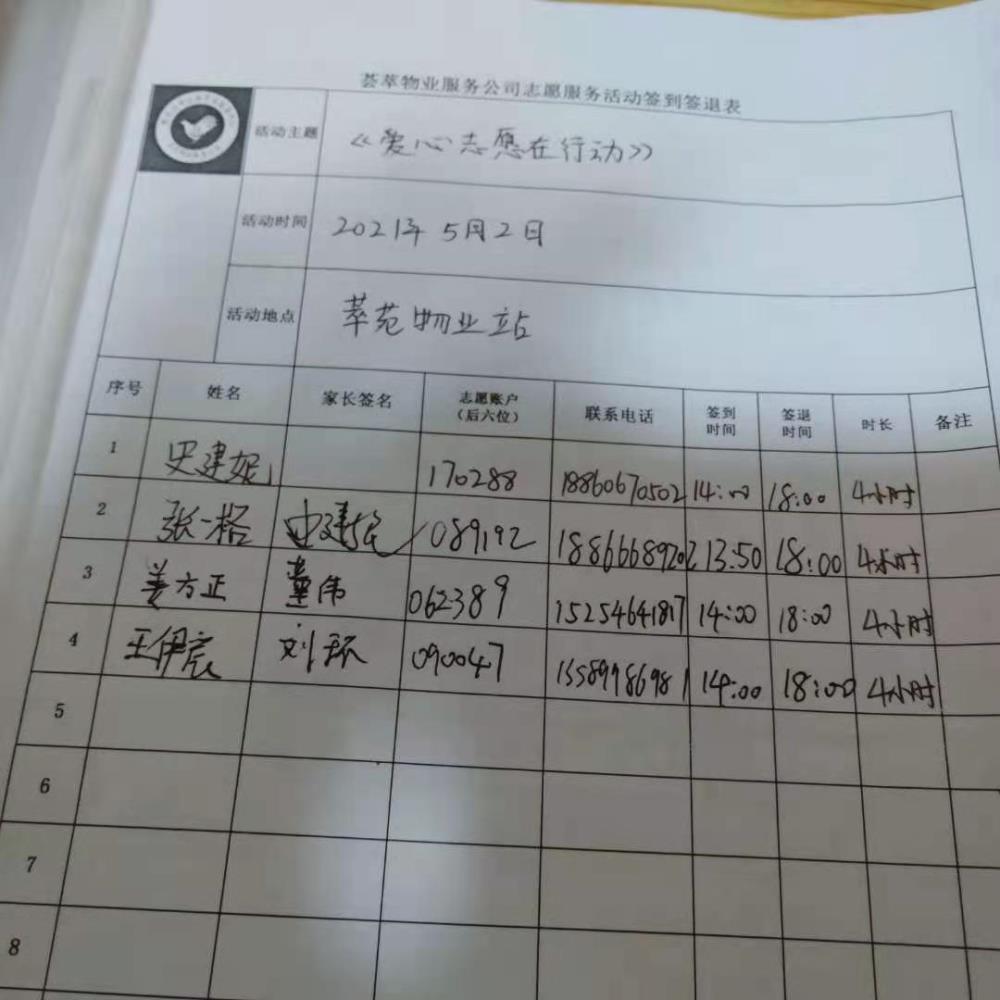 荟萃物业服务公司志愿服务活动签到签退表
活动主题 《爱心志愿在行动》
活动时间 2021年5月2日
活动地点 萃苑物业站
序号 姓名 家长签名 志愿账户（后六位） 联系电话 签到时间 签退时间 时长 备注
1 史建妮 170288 18860670502 14:00 18:00 4小时
2 张一格 089192 18866689202 13:50 18:00 4小时
3 姜方正 董伟 062389 15254641817 14:00 18:00 4小时
4 王伊宸 刘环 090047 14:00 18:00 4小时
5
6
7
8